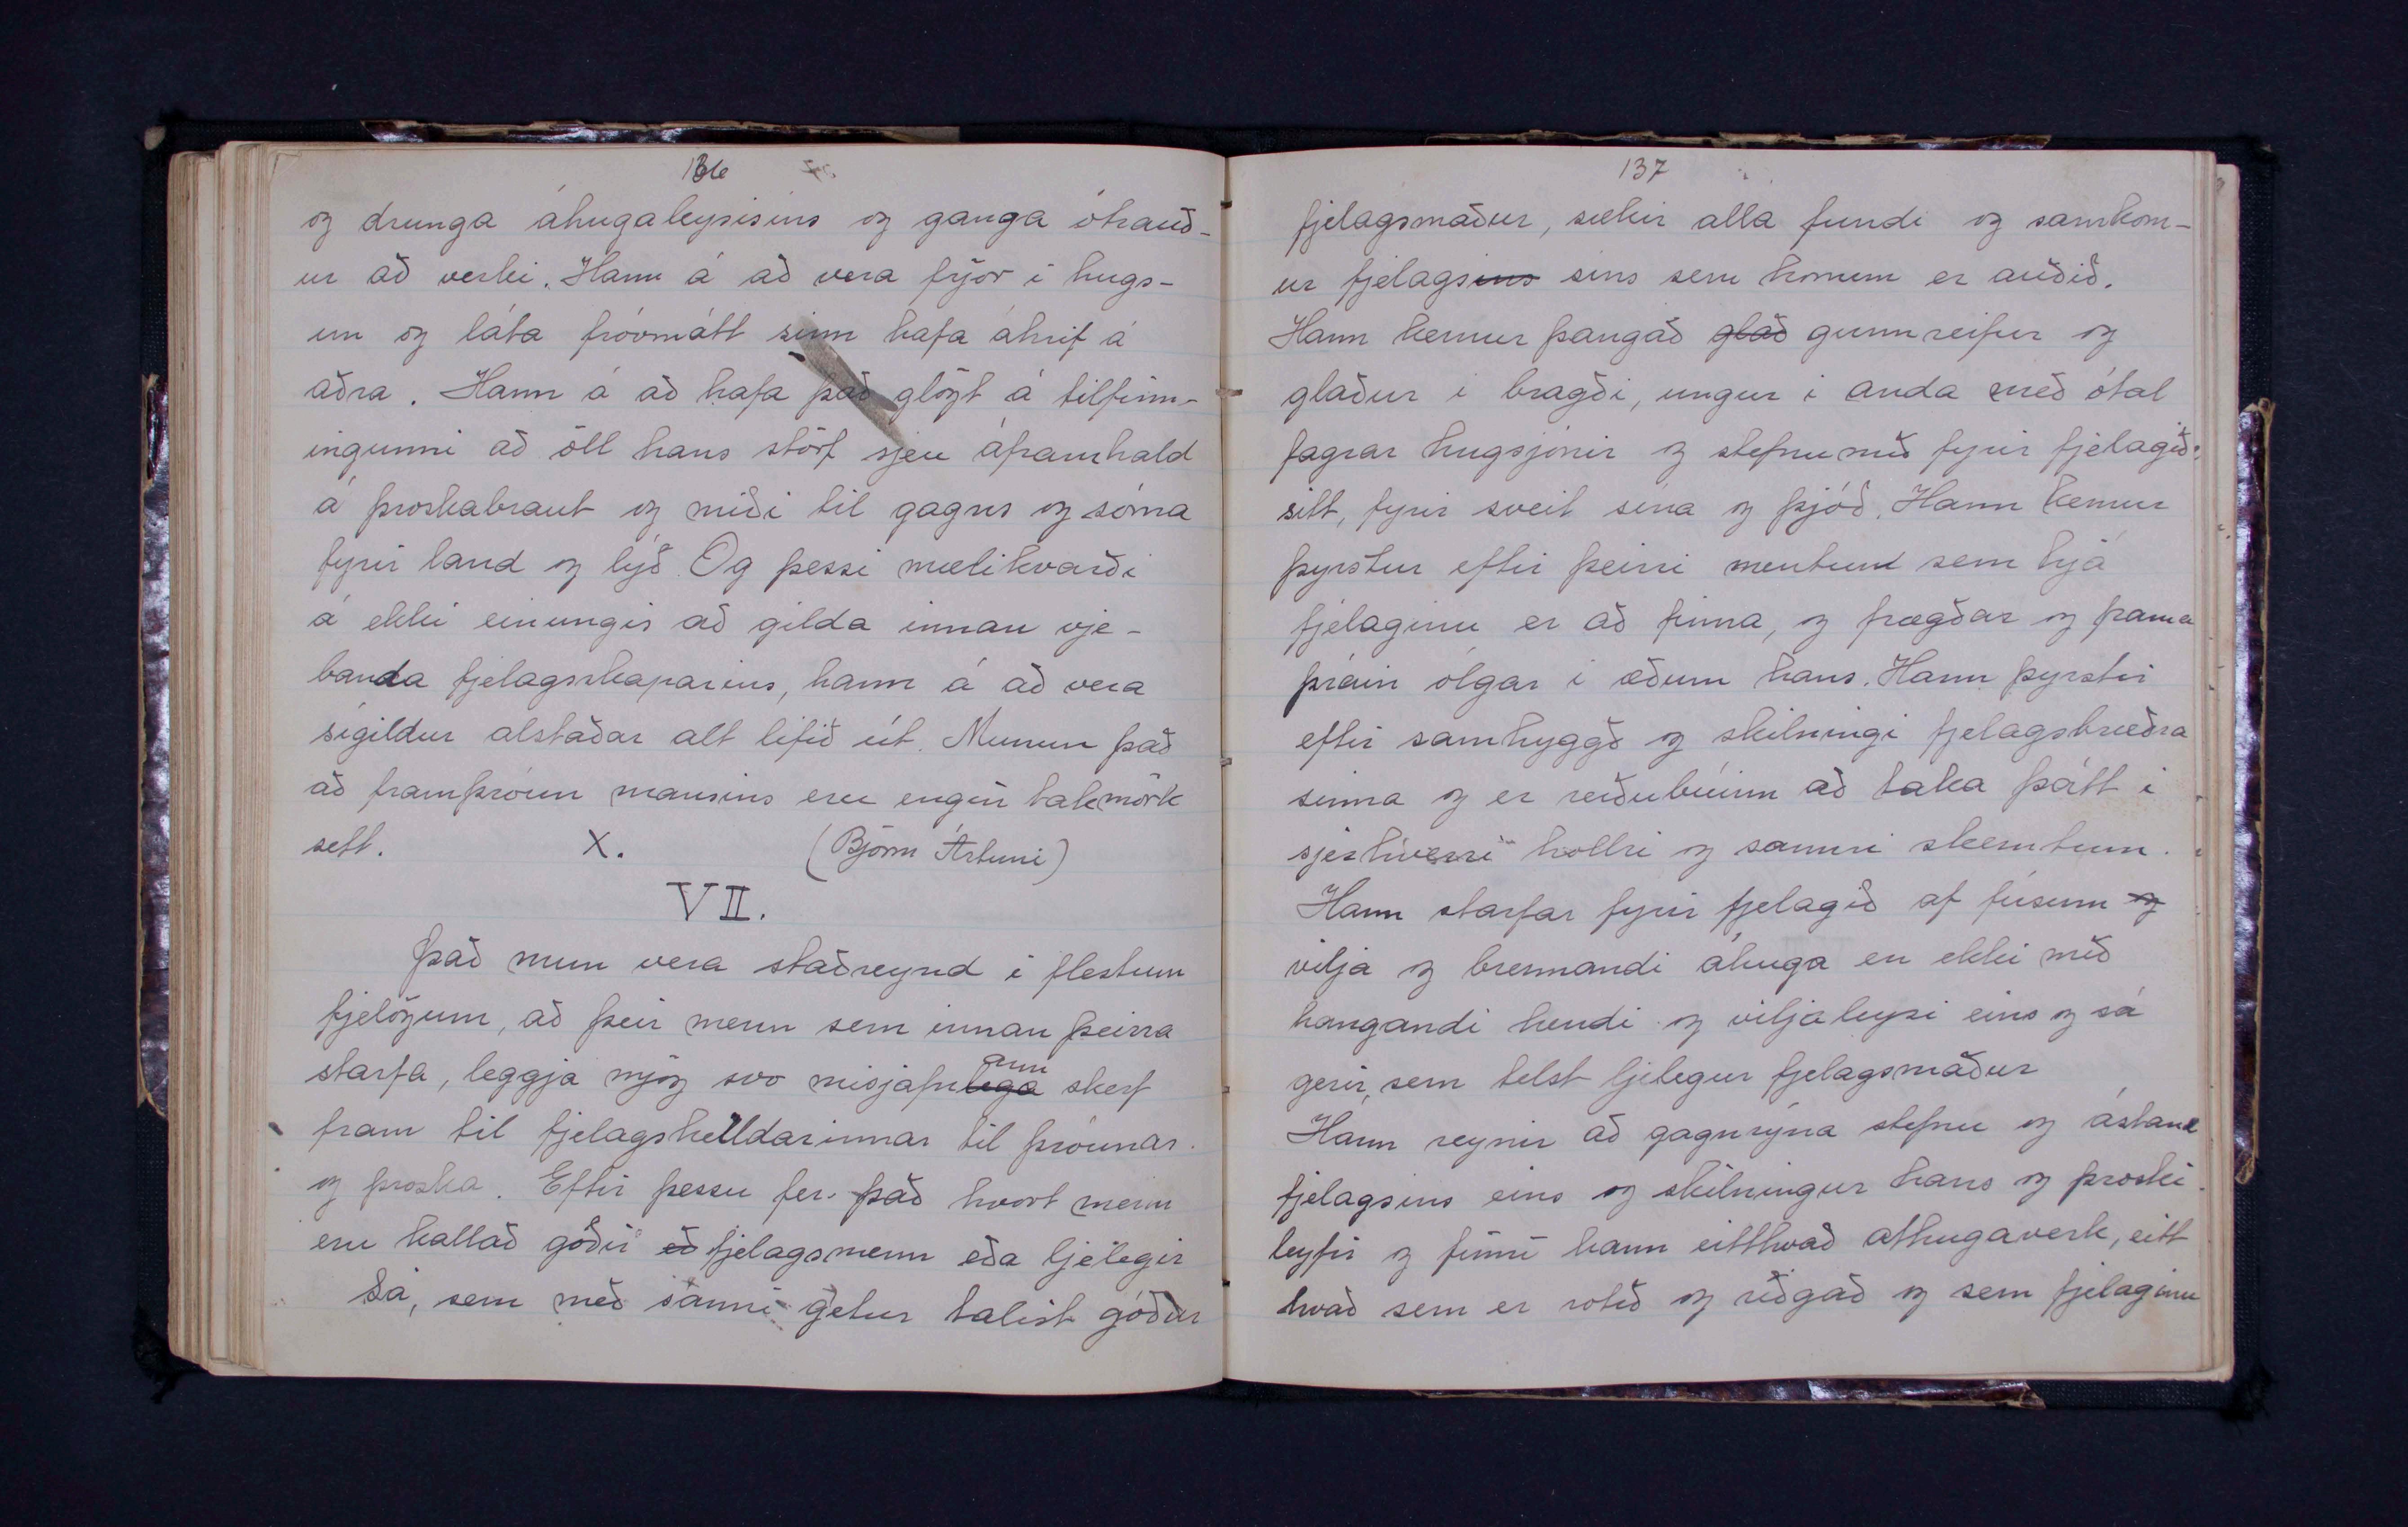 136
og drunga áhugaleysisins og ganga ótrauð-
ur að verki. Hann á að vera frjór í hugs-
un og láta fróvmátt sinn hafa áhrif á
aðra. Hann á að hafa það glögt á tilfinn-
ingunni að öll hans störf sjeu áframhald
á þroskabraut og miði til gagns og sóma
fyrir land og lýð. Og þessi mælikvarði
á ekki einungis að gilda innan vje-
banda fjelagsskaparins, hann á að vera
sígildur alstaðar alt lífið út. Munum það
að framþróun mansins eru engin takmörk
sett. X. (Björn Ártúni)
VII.
Það mun vera staðreynd í flestum
fjelögum, að þeir menn sem innan þeirra
starfa, leggja mjög svo misjafnlega ann skerf
fram til fjelagsheildarinnar til þróunar
og þroska. Eftir þessu fer það hvort menn
eru kallað góðir eð fjelagsmenn eða ljelegir
Sá, sem með sanni getur talist góður
137
fjelagsmaður, sækir alla fundi og samkom-
ur fjelagsins sins sem honum er auðið.
Hann kemur þangað glað gunnreifur og
glaður í bragði, ungur í anda með ótal
fagrar hugsjónir og stefnumið fyrir fjelagið
sitt, fyrir sveit sína og þjóð. Hann kemur
þyrstur eftir þeirri mentun sem hjá
fjelaginu er að finna, og frægðar og frama
þráin ólgar í æðum hans. Hann þyrstir
eftir samhyggð og skilningi fjelagsbræðra
sinna og er reiðubúinn að taka þátt í
sjerhverri hollri og sannri skemtun.
Hann starfar fyrir fjelagið af fúsum og
vilja og brennandi áhuga en ekki með
hangandi hendi og viljaleysi eins og sá
gerir, sem telst ljelegur fjelagsmaður
Hann reynir að gagnrýna stefnu og ástand
fjelagsins eins og skilningur hans og þroski
leyfir og finni hann eitthvað athugaverk, eitt
hvað sem er rotið og riðgað og sem fjelaginu